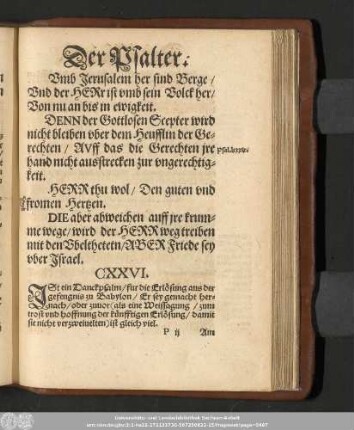 Der Psalter.
Vmb Jerusalem her sind Berge /
Vnd der HERR ist vmb sein Volck her /
Von nu an bis in ewigkeit.
DENN der Gottlosen Scepter wird
nicht bleiben vber dem Heufflin der Ge-
rechten / AVff das die Gerechten jre
hand nicht ausstrecken zur vngerechtig-
keit.
HERR thu wol / Den guten vnd
fromen Hertzen.
DIE aber abweichen auff jre krum-
me wege / wird der HERR weg treiben
mit den Vbelthetetn / ABER Friede sey
vber Jsrael.
CXXVI.
JSt ein Danckpsalm / für die Erlösung aus der
gefengnis zu Babylon / Er sey gemacht her-
nach / oder zuuor (als eine Weissagung / zum
trost vnd hoffnung der künfftigen Erlösung / damit
sie nicht verzweiuelten) ist gleich viel.
P ij Am
Universitäts- und Landesbibliothek Sachsen-Anhalt